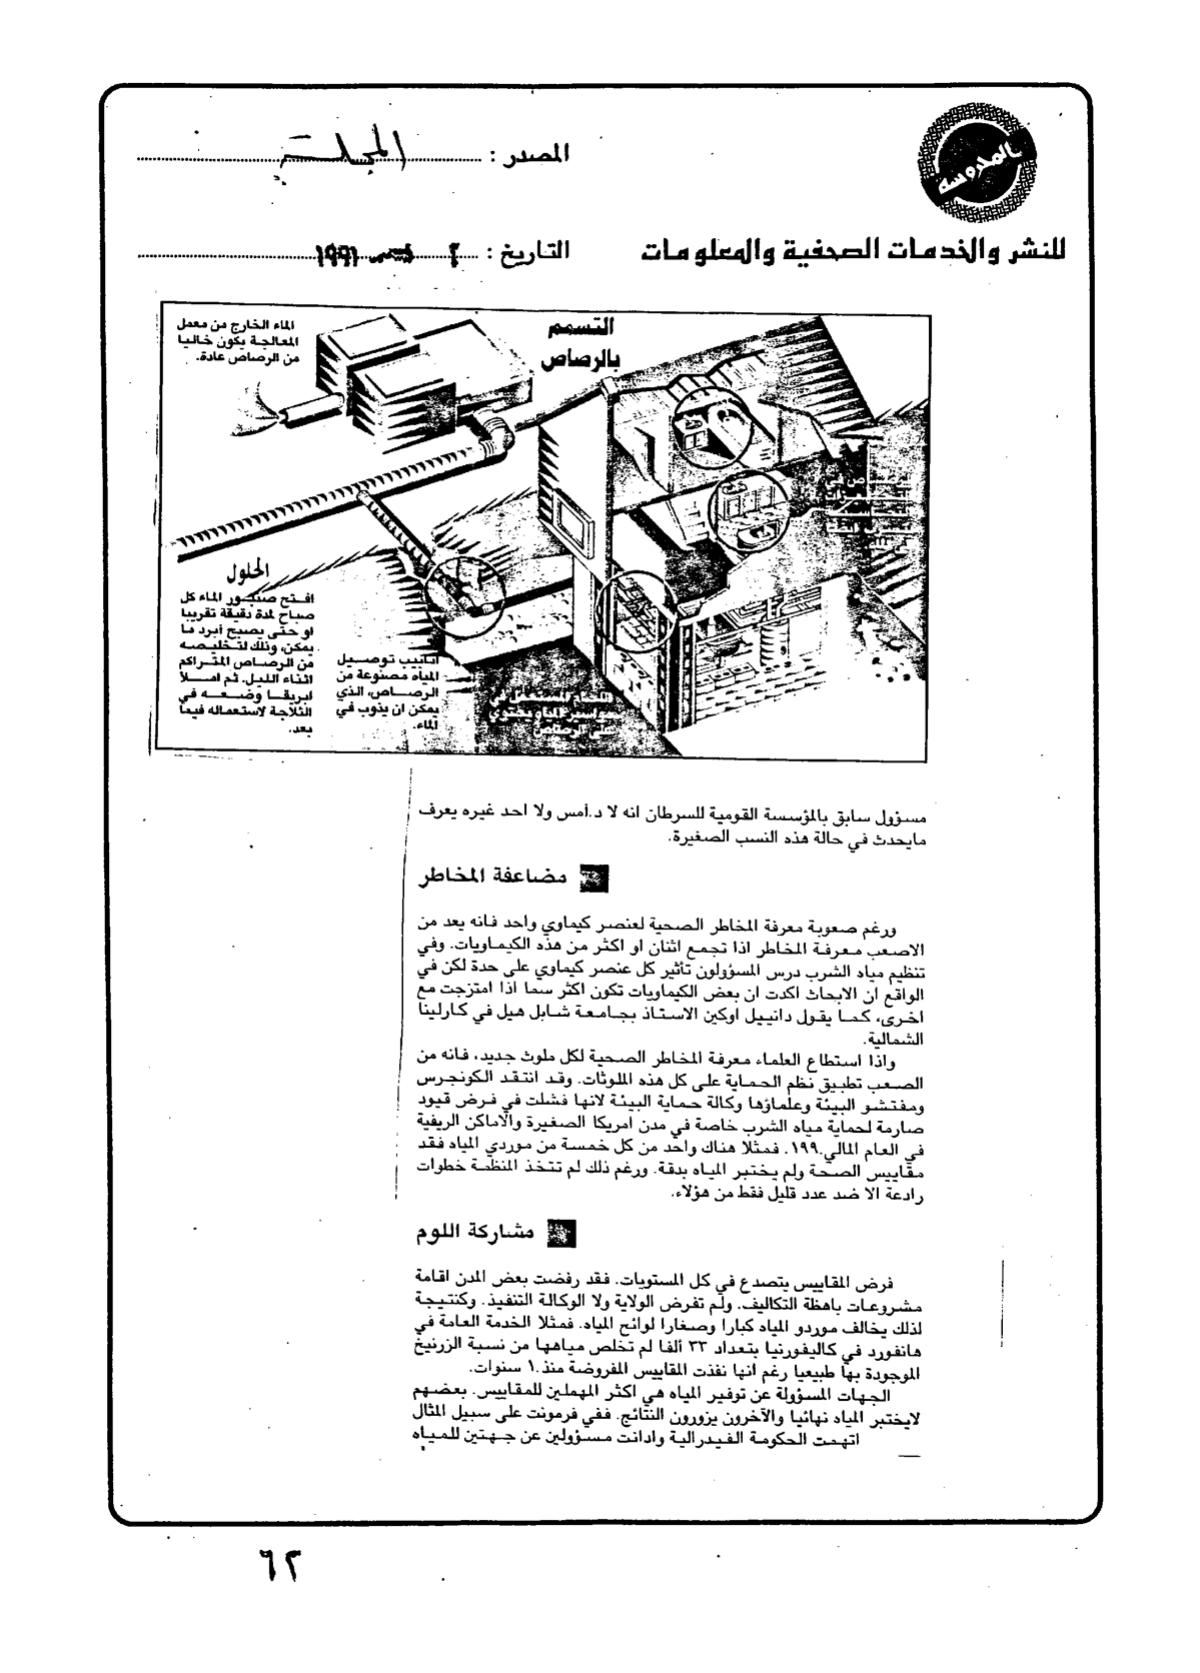 المصدر : المجلة
بالمدروسة
للنشر والخدمات الصحفية والمعلومات
التاريخ : ديسمبر ١٩٩١
التسمم
بالرصاص
الماء الخارج من معمل
المعالجة يكون خاليا
من الرصاص عادة.
الحلول
افتح صنبور الماء كل
صباح لمدة دقيقة تقريبا
او حتى يصبح أبرد ما
يمكن، وذلك لتخليصه
من الرصاص المتراكم
اثناء الليل. ثم املأ
ابريقا وضعه في
الثلاجة لاستعماله فيما
بعد.
انابيب توصيل
المياه مصنوعة من
الرصاص، الذي
يمكن ان يذوب في
الماء.
مسؤول سابق بالمؤسسة القومية للسرطان انه لا د.أمس ولا احد غيره يعرف
مايحدث في حالة هذه النسب الصغيرة.
مضاعفة المخاطر
ورغم صعوبة معرفة المخاطر الصحية لعنصر كيماوي واحد فانه يعد من
الاصعب معرفة المخاطر اذا تجمع اثنان او اكثر من هذه الكيماويات. وفي
تنظيم مياه الشرب درس المسؤولون تأثير كل عنصر كيماوي على حدة لكن في
الواقع ان الابحاث اكدت ان بعض الكيماويات تكون اكثر سما اذا امتزجت مع
اخرى، كما يقول دانييل اوكين الاستاذ بجامعة شابل هيل في كارلينا
الشمالية.
واذا استطاع العلماء معرفة المخاطر الصحية لكل ملوث جديد، فانه من
الصعب تطبيق نظم الحماية على كل هذه الملوثات. وقد انتقد الكونجرس
ومفتشو البيئة وعلماؤها وكالة حماية البيئة لانها فشلت في فرض قيود
صارمة لحماية مياه الشرب خاصة في مدن أمريكا الصغيرة والاماكن الريفية
في العام المالي ١٩٩٠. فمثلا هناك واحد من كل خمسة من موردي المياه فقد
مقاييس الصحة ولم يختبر المياه بدقة. ورغم ذلك لم تتخذ المنظمة خطوات
رادعة الا ضد عدد قليل فقط من هؤلاء.
مشاركة اللوم
فرض المقاييس يتصدع في كل المستويات. فقد رفضت بعض المدن اقامة
مشروعات باهظة التكاليف. ولم تفرض الولاية ولا الوكالة التنفيذ. وكنتيجة
لذلك يخالف موردو المياه كبارا وصغارا لوائح المياه. فمثلا الخدمة العامة في
هانفورد في كاليفورنيا بتعداد ٣٣ ألفا لم تخلص مياهها من نسبة الزرنيخ
الموجودة بها طبيعيا رغم انها نفذت المقاييس المفروضة منذ ١٠ سنوات.
الجهات المسؤولة عن توفير المياه هي اكثر المهملين للمقاييس. بعضهم
لايختبر المياه نهائيا والآخرون يزورون النتائج. ففي فرمونت على سبيل المثال
اتهمت الحكومة الفيدرالية وادانت مسؤولين عن جهتين للمياه
٦٢